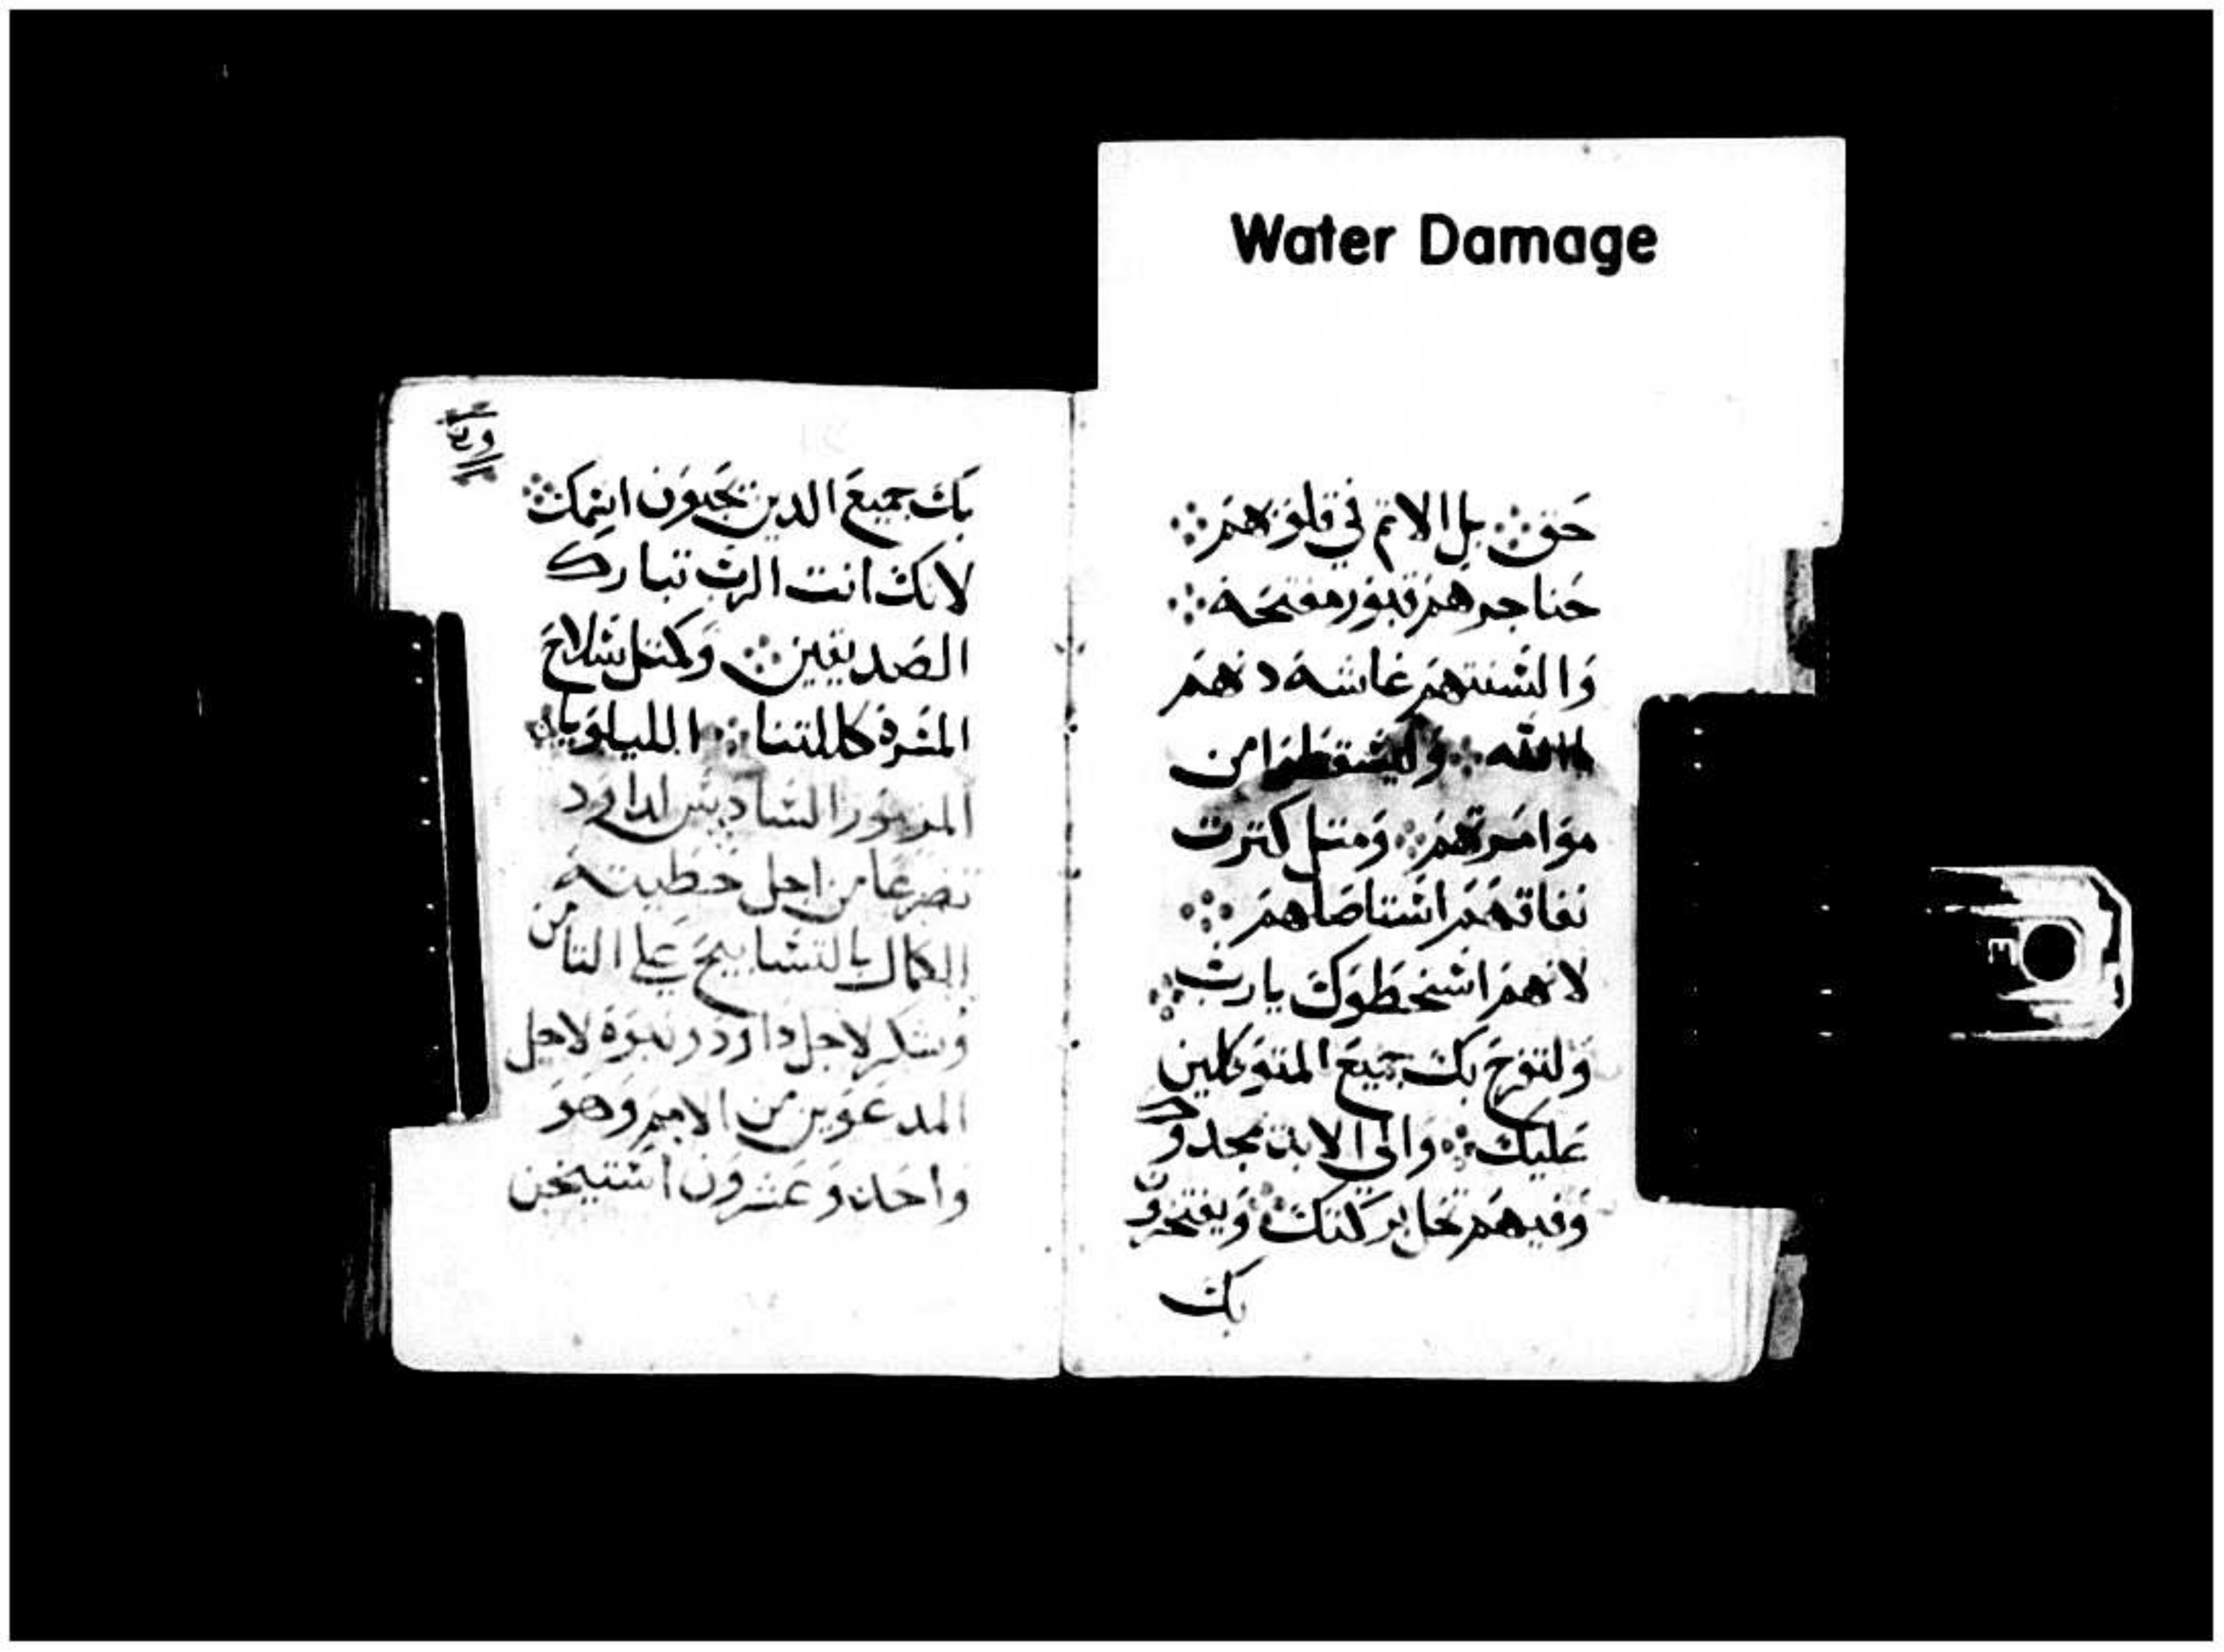 Water Damage
حَق ܀ بل الاتم في قلوَبهمَ ܀
حَناجرهمَ قبوَر مفتحَة ܀
وَالسَنتهمَ غاشة دنهمَ
ياالله ܀ وَليسَقطوَا من
موَامرتهمَ ܀ وَمتل كترت
نفاقهمَ اسَتاصَلهمَ ܀
لانهمَ اسَخطوَك يارب ܀
وَلتفرحَ بك جميعَ المتوَكلين
عَليك ܀ وَالي الابد مجدوَك
وَفيهمَ تحَل بركتك ܀ وَيفتخروَن
بك
بَك جميعَ الدين يحَبوَن اسَمك ܀
لانك انت الرب تبارك
الصَديقين ܀ وَكمتل سَلاحَ
المسَرة كللتنا ܀ الليلوَيا ܀
المزموَر السَادسَ لداوَد
تضرعَا من اجل خطيته
الكمال بالتسَابيحَ عَلي التامن
وَشكر لاجل داوَد ونبوَة لاجل
المدعَوَين من الامم وَهوَ
وَاحَد وَعَشروَن اسَتيخن